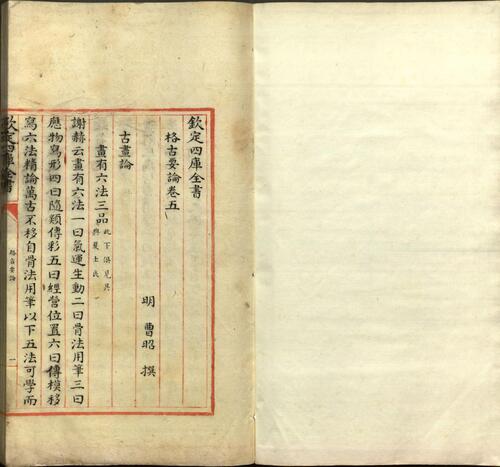 欽定四庫全書
格古要論卷五
明 曹昭 撰
古畫論
畫有六法三品
此下俱見吳
興夏士良
謝赫云畫有六法一曰氣運生動二曰骨法用筆三曰
應物寫形四曰隨類傳彩五曰經營位置六曰傳模移
寫六法精論萬古不移自骨法用筆以下五法可學而
欽定四庫全書
格古要論
一